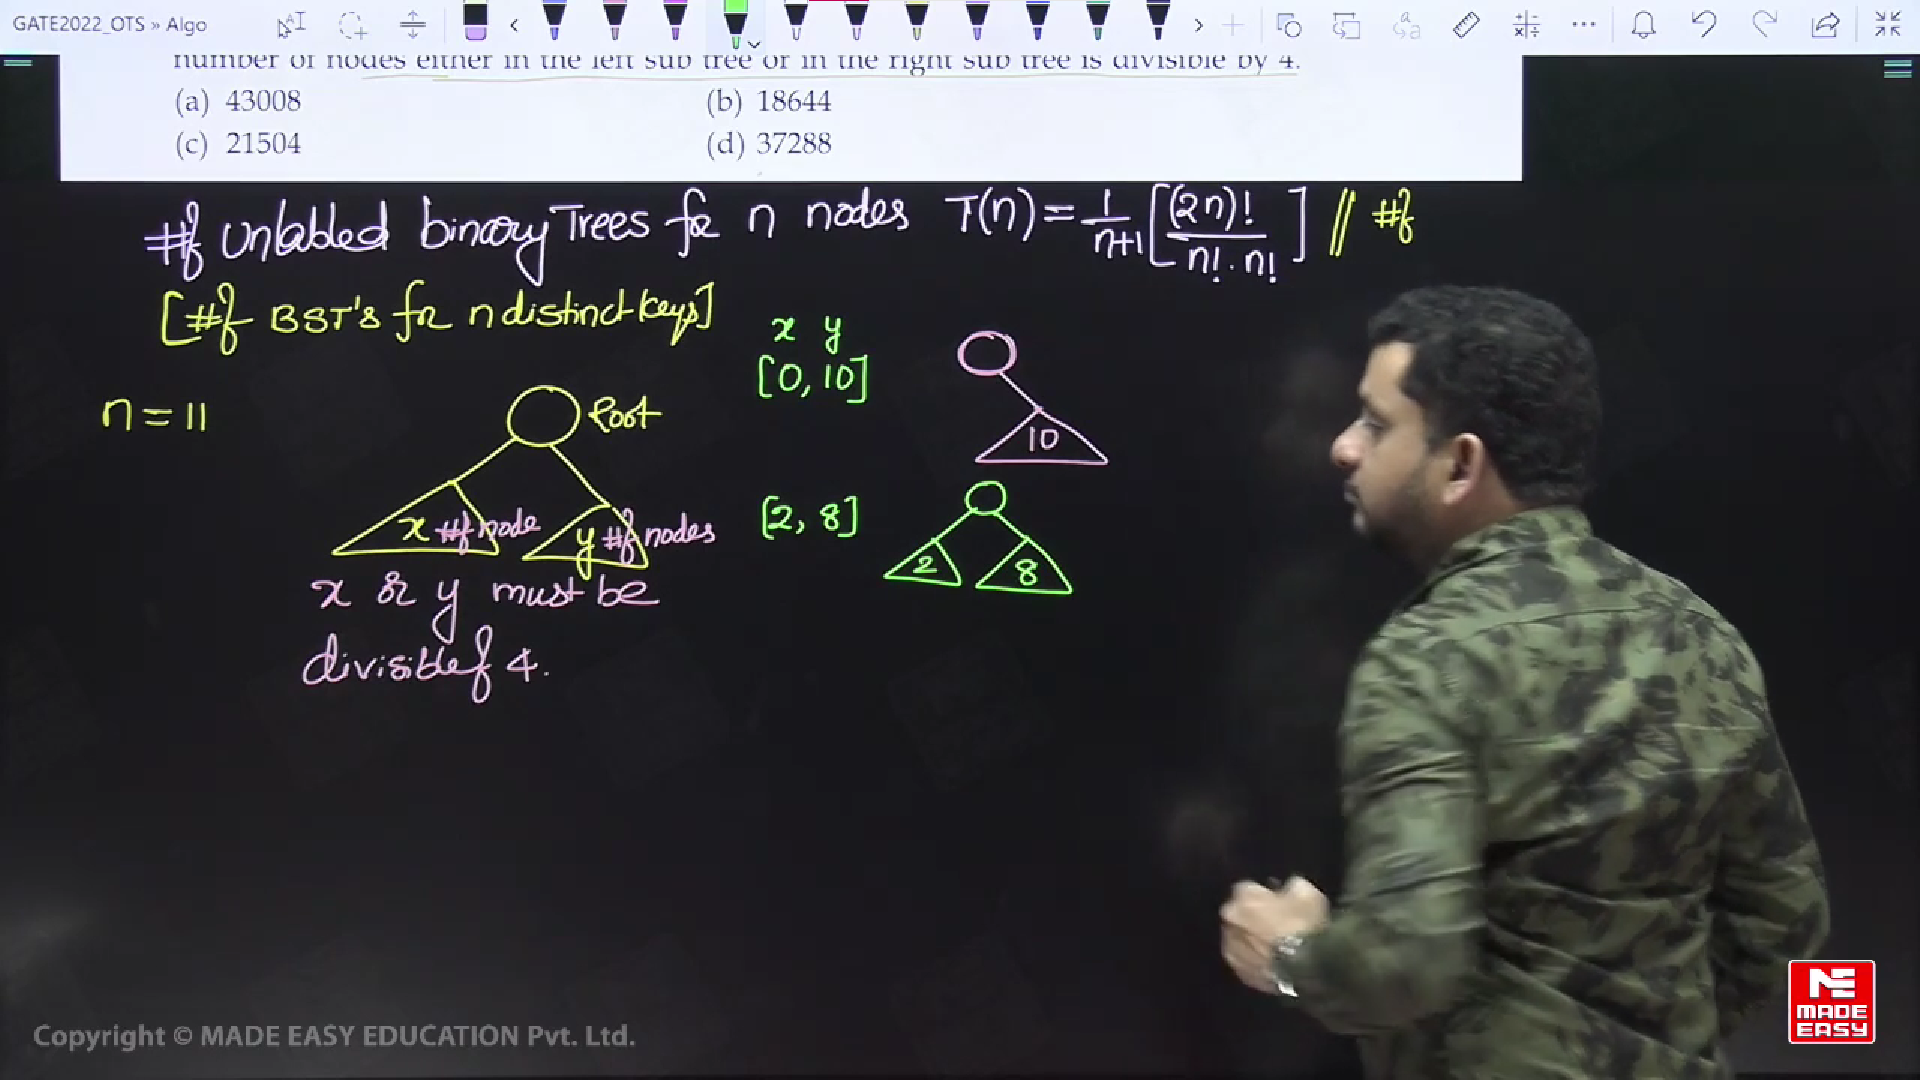 GATE2022_OTS » Algo
number of nodes either in the left sub tree or in the right sub tree is divisible by 4.
(a) 43008 (b) 18644
(c) 21504 (d) 37288
#of unlabled binary Trees for n nodes T(n) = 1/n+1 [(2n)!/n!.n!] // #of
[#of BST's for n distinct keys]
x y
[0, 10]
10
n = 11
Root
x #of node y #of nodes
[2, 8]
2 8
x or y must be
divisible of 4.
Copyright © MADE EASY EDUCATION Pvt. Ltd.
ME
MADE
EASY